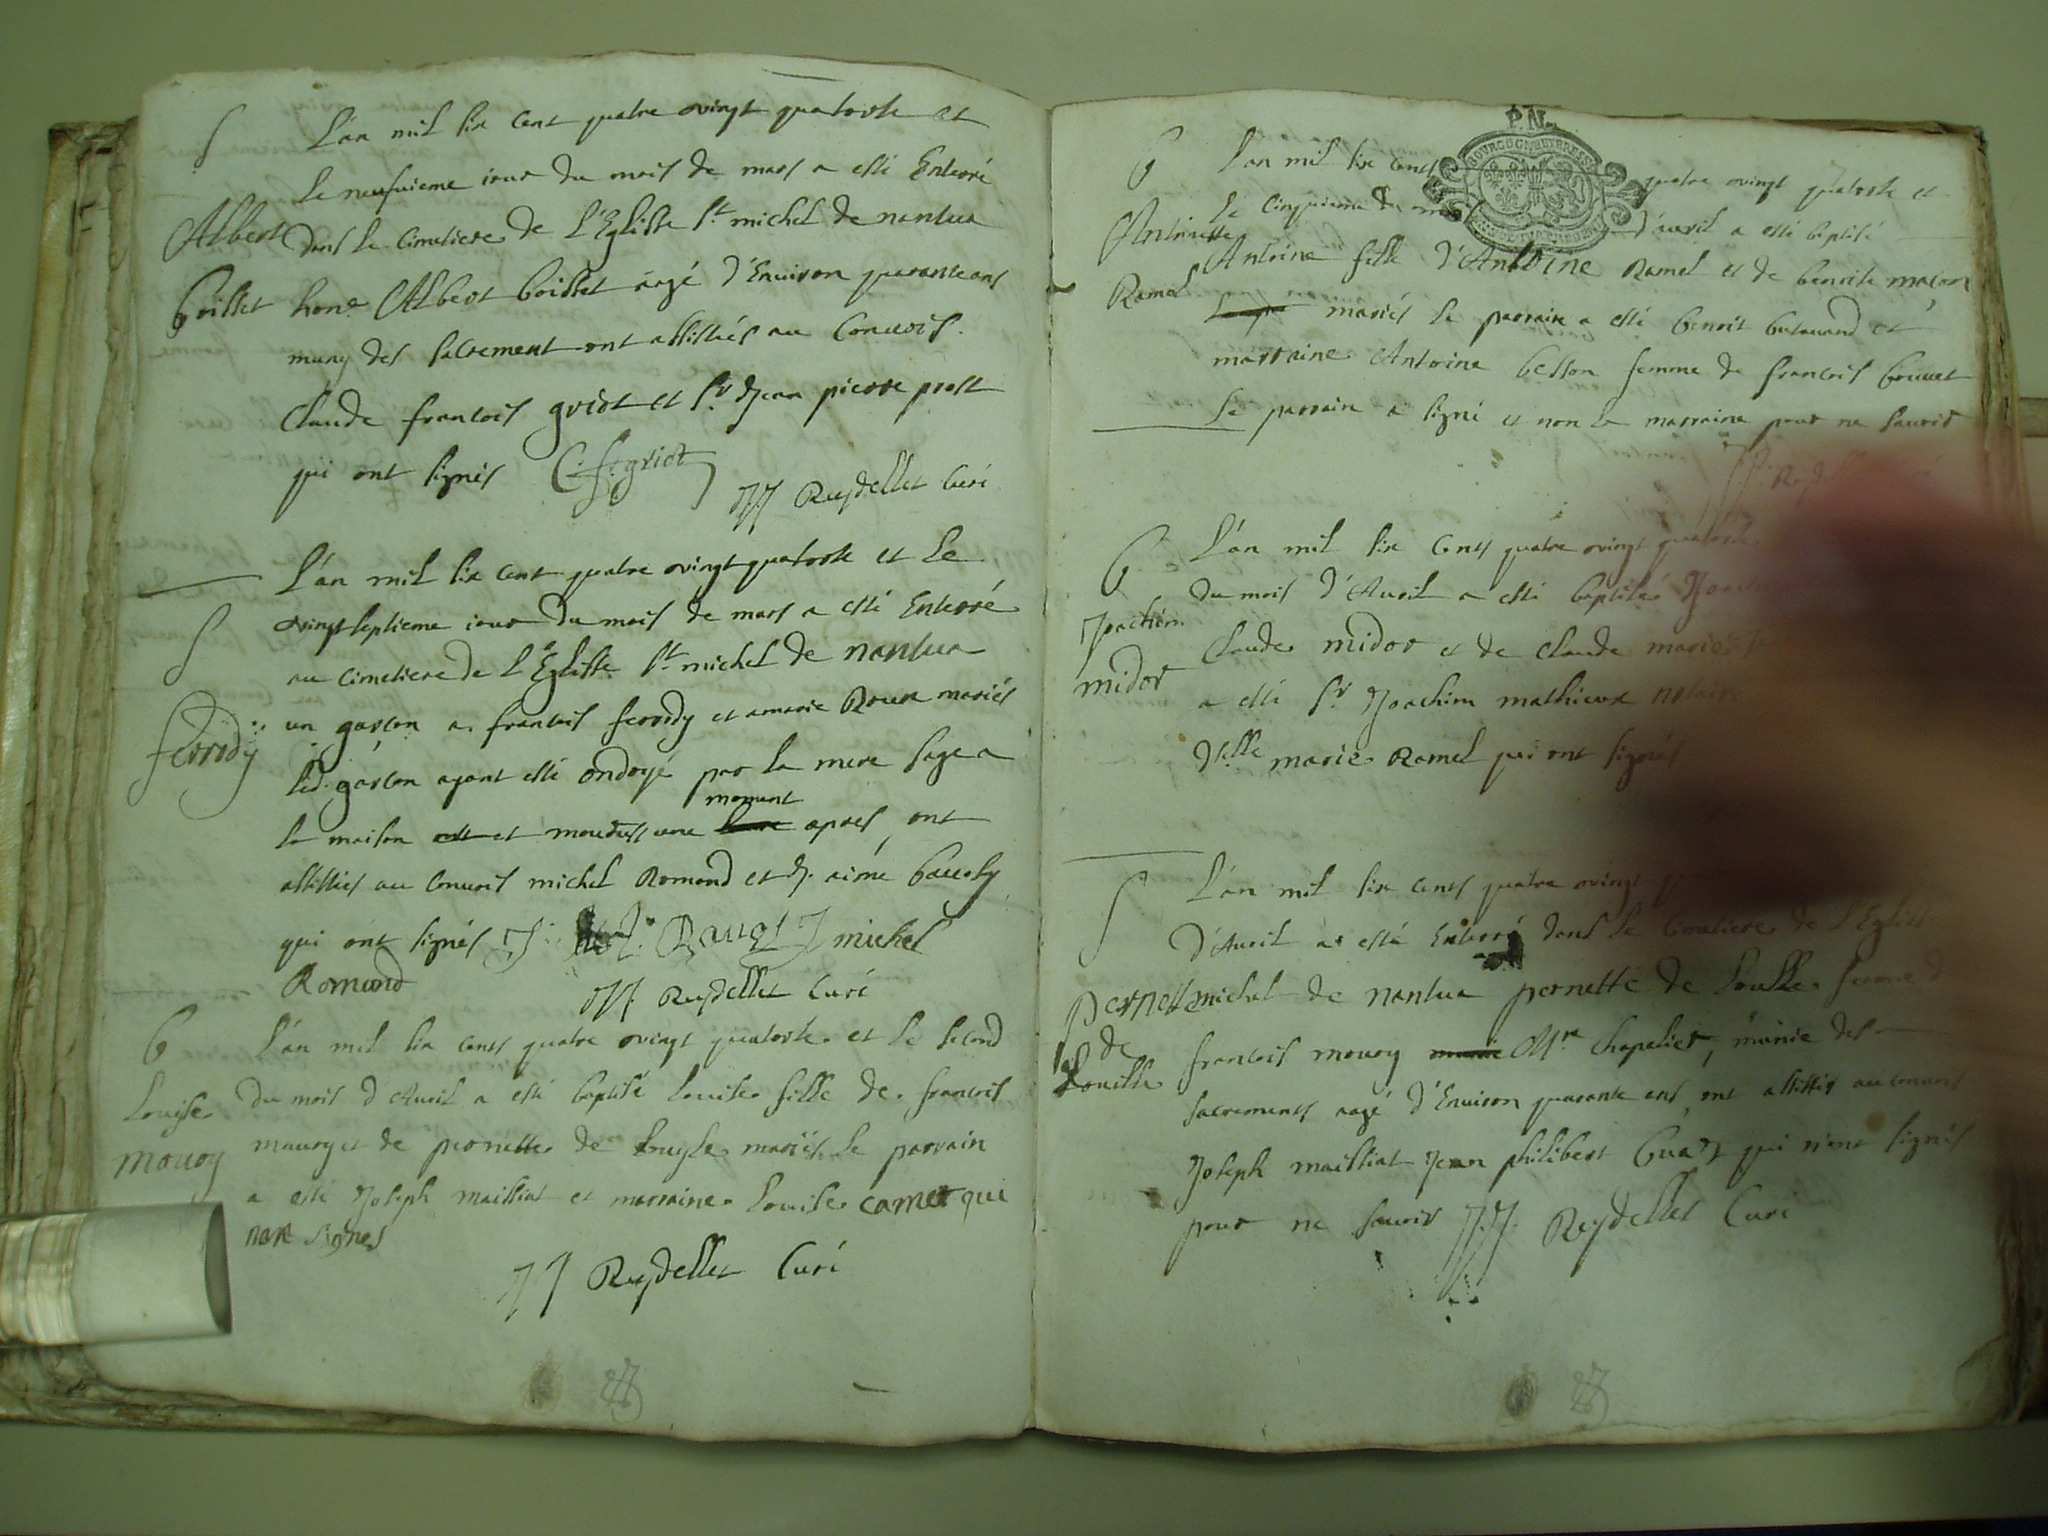 S
L'an mil six cent quatre vingt quatorse et
le neufuieme iour du mois de mars a esté Enterré
Albert
dans le cimetiere de l'Eglisse St michel de nantua
boisset
hone Albert boisset aagé d'Enuiron quarante ans
muny des sacrement ont assistés au Conuois
Claude francois griot et Sr Jean pierre prost
qui ont signés C. f. griot
JJ Reydellet Curé
L'an mil six cent quatre vingt quatorse et le
S
vingt septieme iour du mois de mars a esté Enterré
au cimetiere de l'Eglisse St michel de nantua
ferrody
un garson a francois ferrody et a marie Roux mariés
led. garson ayant esté ondoyé par la mere sage a
moment
la maison et apres ont
assistés au conuois michel Romand et J. aimé
qui ont signés michel
Romand
JJ Reydellet Curé
b
L'an mil six cents quatre vingt quatorse et le second
Louise
du mois d'Auril a esté baptisé Louise fille de francois
mouoy
et de pernette de mariés le parrain
a esté Joseph mailliat et marraine Louise carrier qui
non signes
JJ Reydellet Curé
P.N.
BOURGOGNE
b
L'an mil six cents quatre vingt quatorse et
le cinquieme du mois d'auril a esté baptisé
Antoinette
Antoine fille d'Antoine Ramel et de benoite maçon
Ramel
mariés le parrain a esté benoit et
marraine Antoine besson femme de francois bouuet
le parrain a signé et non la marraine pour ne sauoir
b
L'an mil six cents quatre vingt quatorse
du mois d'Auril a esté baptisé
Joachim
Claude midor et de Claude marie
midor
a esté Sr Joachim mathieux notaire
delle marie Ramel qui ont signés
S
L'an mil six cents quatre vingt
d'Auril a esté Enterré dans le Cimetiere de l'Eglisse
Pernette
michel de nantua pernette de femme
de
francois mouoy Mre Chapelier, munie des
sacrements aagé d'Enuiron quarante ans, ont assistés au conuois
Joseph mailliat Jean philibert qui n'ont signés
pour ne sauoir JJ. Reydellet Curé